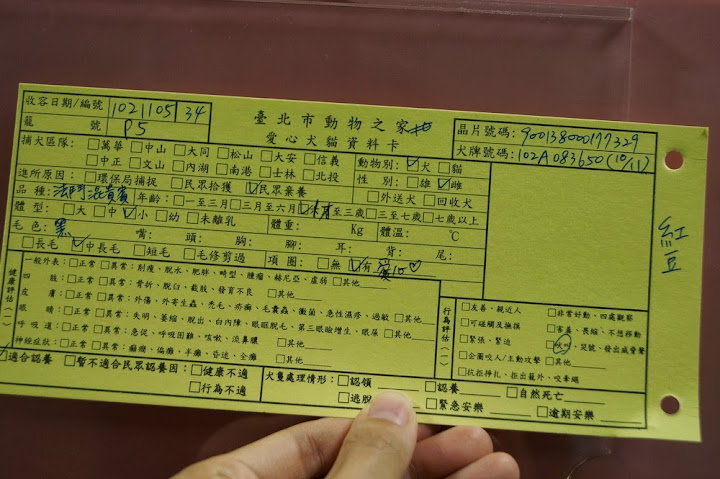 收容日期/編號 1021105 34
籠號 P5
臺北市動物之家
愛心犬貓資料卡
晶片號碼:900138000177329
犬牌號碼:102A083650(10/11)
捕犬區隊: □萬華 □中山 □大同 □松山 □大安 □信義
□中正 □文山 □內湖 □南港 □士林 □北投
動物別:☑犬 □貓
進所原因:□環保局捕捉 □民眾拾獲 ☑民眾棄養
性別:□雄 ☑雌
品種:法鬥混貴賓
年齡:□一至三月 □三月至六月 ☑六月至三歲 □三至七歲 □七歲以上
□外送犬 □回收犬
體型:□大 □中 ☑小 □幼 □未離乳
體重: Kg 體溫: ℃
毛色:黑 嘴: 頭: 胸: 腳: 耳: 背: 尾:
□長毛 ☑中長毛 □短毛 □毛修剪過
項圈:□無 ☑有
紅豆
健康評估(一)
一般外表:□正常 □異常:削瘦、脫水、肥胖、畸型、腫瘤、赫尼亞、虛弱 □其他
四肢:□正常 □異常:骨折、脫臼、截肢、發育不良 □其他
皮膚:□正常 □異常:外傷、外寄生蟲、禿毛、疥癬、毛囊蟲、黴菌、急性濕疹、過敏 □其他
眼睛:□正常 □異常:失明、萎縮、脫出、白內障、眼眶脫毛、第三眼瞼增生、眼屎 □其他
呼吸道:□正常 □異常:急促、呼吸困難、咳嗽、流鼻膿 □其他
神經症狀:□正常 □異常:癲癇、偏癱、半癱、昏迷、全癱 □其他
行為評估(一)
□友善、親近人 □非常好動、四處觀察
□可碰觸及撫摸 □害羞、畏縮、不想移動
□緊張、緊迫 □吠叫、哭號、發出威脅聲
□企圖咬人/主動攻擊 □其他
□抗拒掙扎、拒出籠外、咬牽繩
☑適合認養 □暫不適合民眾認養因:□健康不適
□行為不適
犬隻處理情形:□認領 □認養 □自然死亡
□逃脫 □緊急安樂 □逾期安樂